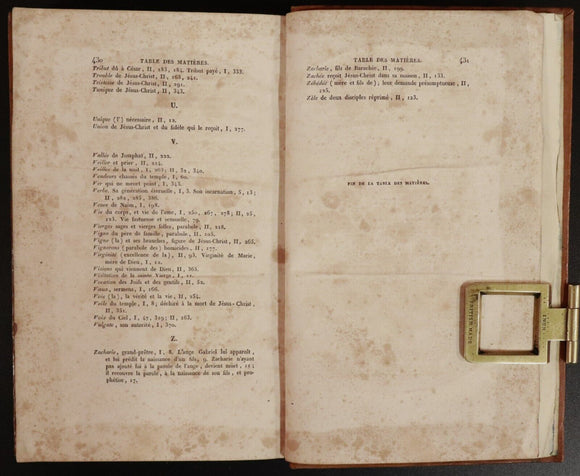 430
TABLE DES MATIÈRES.
Tribut dû à César, II, 183, 184. Tribut payé, I, 333.
Trouble de Jésus-Christ, II, 268, 241.
Tristesse de Jésus-Christ, II, 291.
Tunique de Jésus-Christ, II, 343.
U.
Unique (l') nécessaire, II, 12.
Union de Jésus-Christ et du fidèle qui le reçoit, I, 277.
V.
Vallée de Josaphat, II, 222.
Veiller et prier, II, 224.
Veilles de la nuit, I, 263; II, 32, 340.
Vendeurs chassés du temple, I, 60.
Ver qui ne meurt point, I, 343.
Verbe. Sa génération éternelle, I, 3. Son incarnation, 5, 13;
II, 262, 285, 286.
Veuve de Naïm, I, 198.
Vie du corps, et vie de l'âme, I, 250, 267, 278; II, 25,
125. Vie fastueuse et sensuelle, 79.
Vierges sages et vierges folles, parabole, II, 228.
Vigne du père de famille, parabole, II, 125.
Vigne (la) et ses branches, figure de Jésus-Christ, II, 265.
Vignerons (parabole des) homicides, II, 177.
Virginité (excellence de la), II, 93. Virginité de Marie,
mère de Dieu, I, 12.
Visions qui viennent de Dieu, II, 363.
Visitation de la sainte Vierge, I, 11.
Vocation des Juifs et des gentils, II, 52.
Vœux, sermens, I, 166.
Voie (la), la vérité et la vie, II, 254.
Voile du temple, I, 8; déchiré à la mort de Jésus-Christ,
II, 351.
Voix du Ciel, I, 47, 329; II, 163.
Vulgate, son autorité, I, 370.
Z.
Zacharie, grand-prêtre, I, 8. L'ange Gabriel lui apparaît,
et lui prédit la naissance d'un fils, 9. Zacharie n'ayant
pas ajouté foi à la parole de l'ange, devient muet, 15;
il recouvre la parole, à la naissance de son fils, et pro-
phétise, 17.
TABLE DES MATIÈRES.
431
Zacharie, fils de Barachie, II, 199.
Zachée reçoit Jésus-Christ dans sa maison, II, 133.
Zébédée (mère et fils de); leur demande présomptueuse, II,
125.
Zèle de deux disciples réprimé, II, 123.
FIN DE LA TABLE DES MATIÈRES.
BRITISH MADE